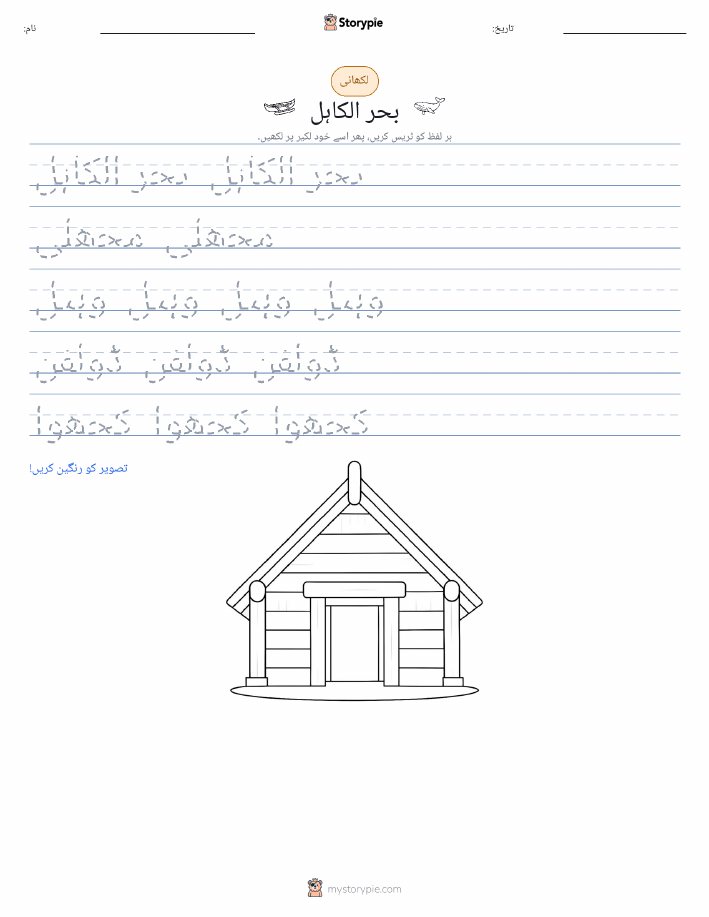 نام:
Storypie
تاریخ:
لکھائی
بحر الکاہل
ہر لفظ کو ٹریس کریں، پھر اسے خود لکیر پر لکھیں۔
بحر الکاہل بحر الکاہل
مچھلی مچھلی
وہیل وہیل وہیل وہیل
ڈولفن ڈولفن ڈولفن
کچھوا کچھوا کچھوا
تصویر کو رنگین کریں!
mystorypie.com